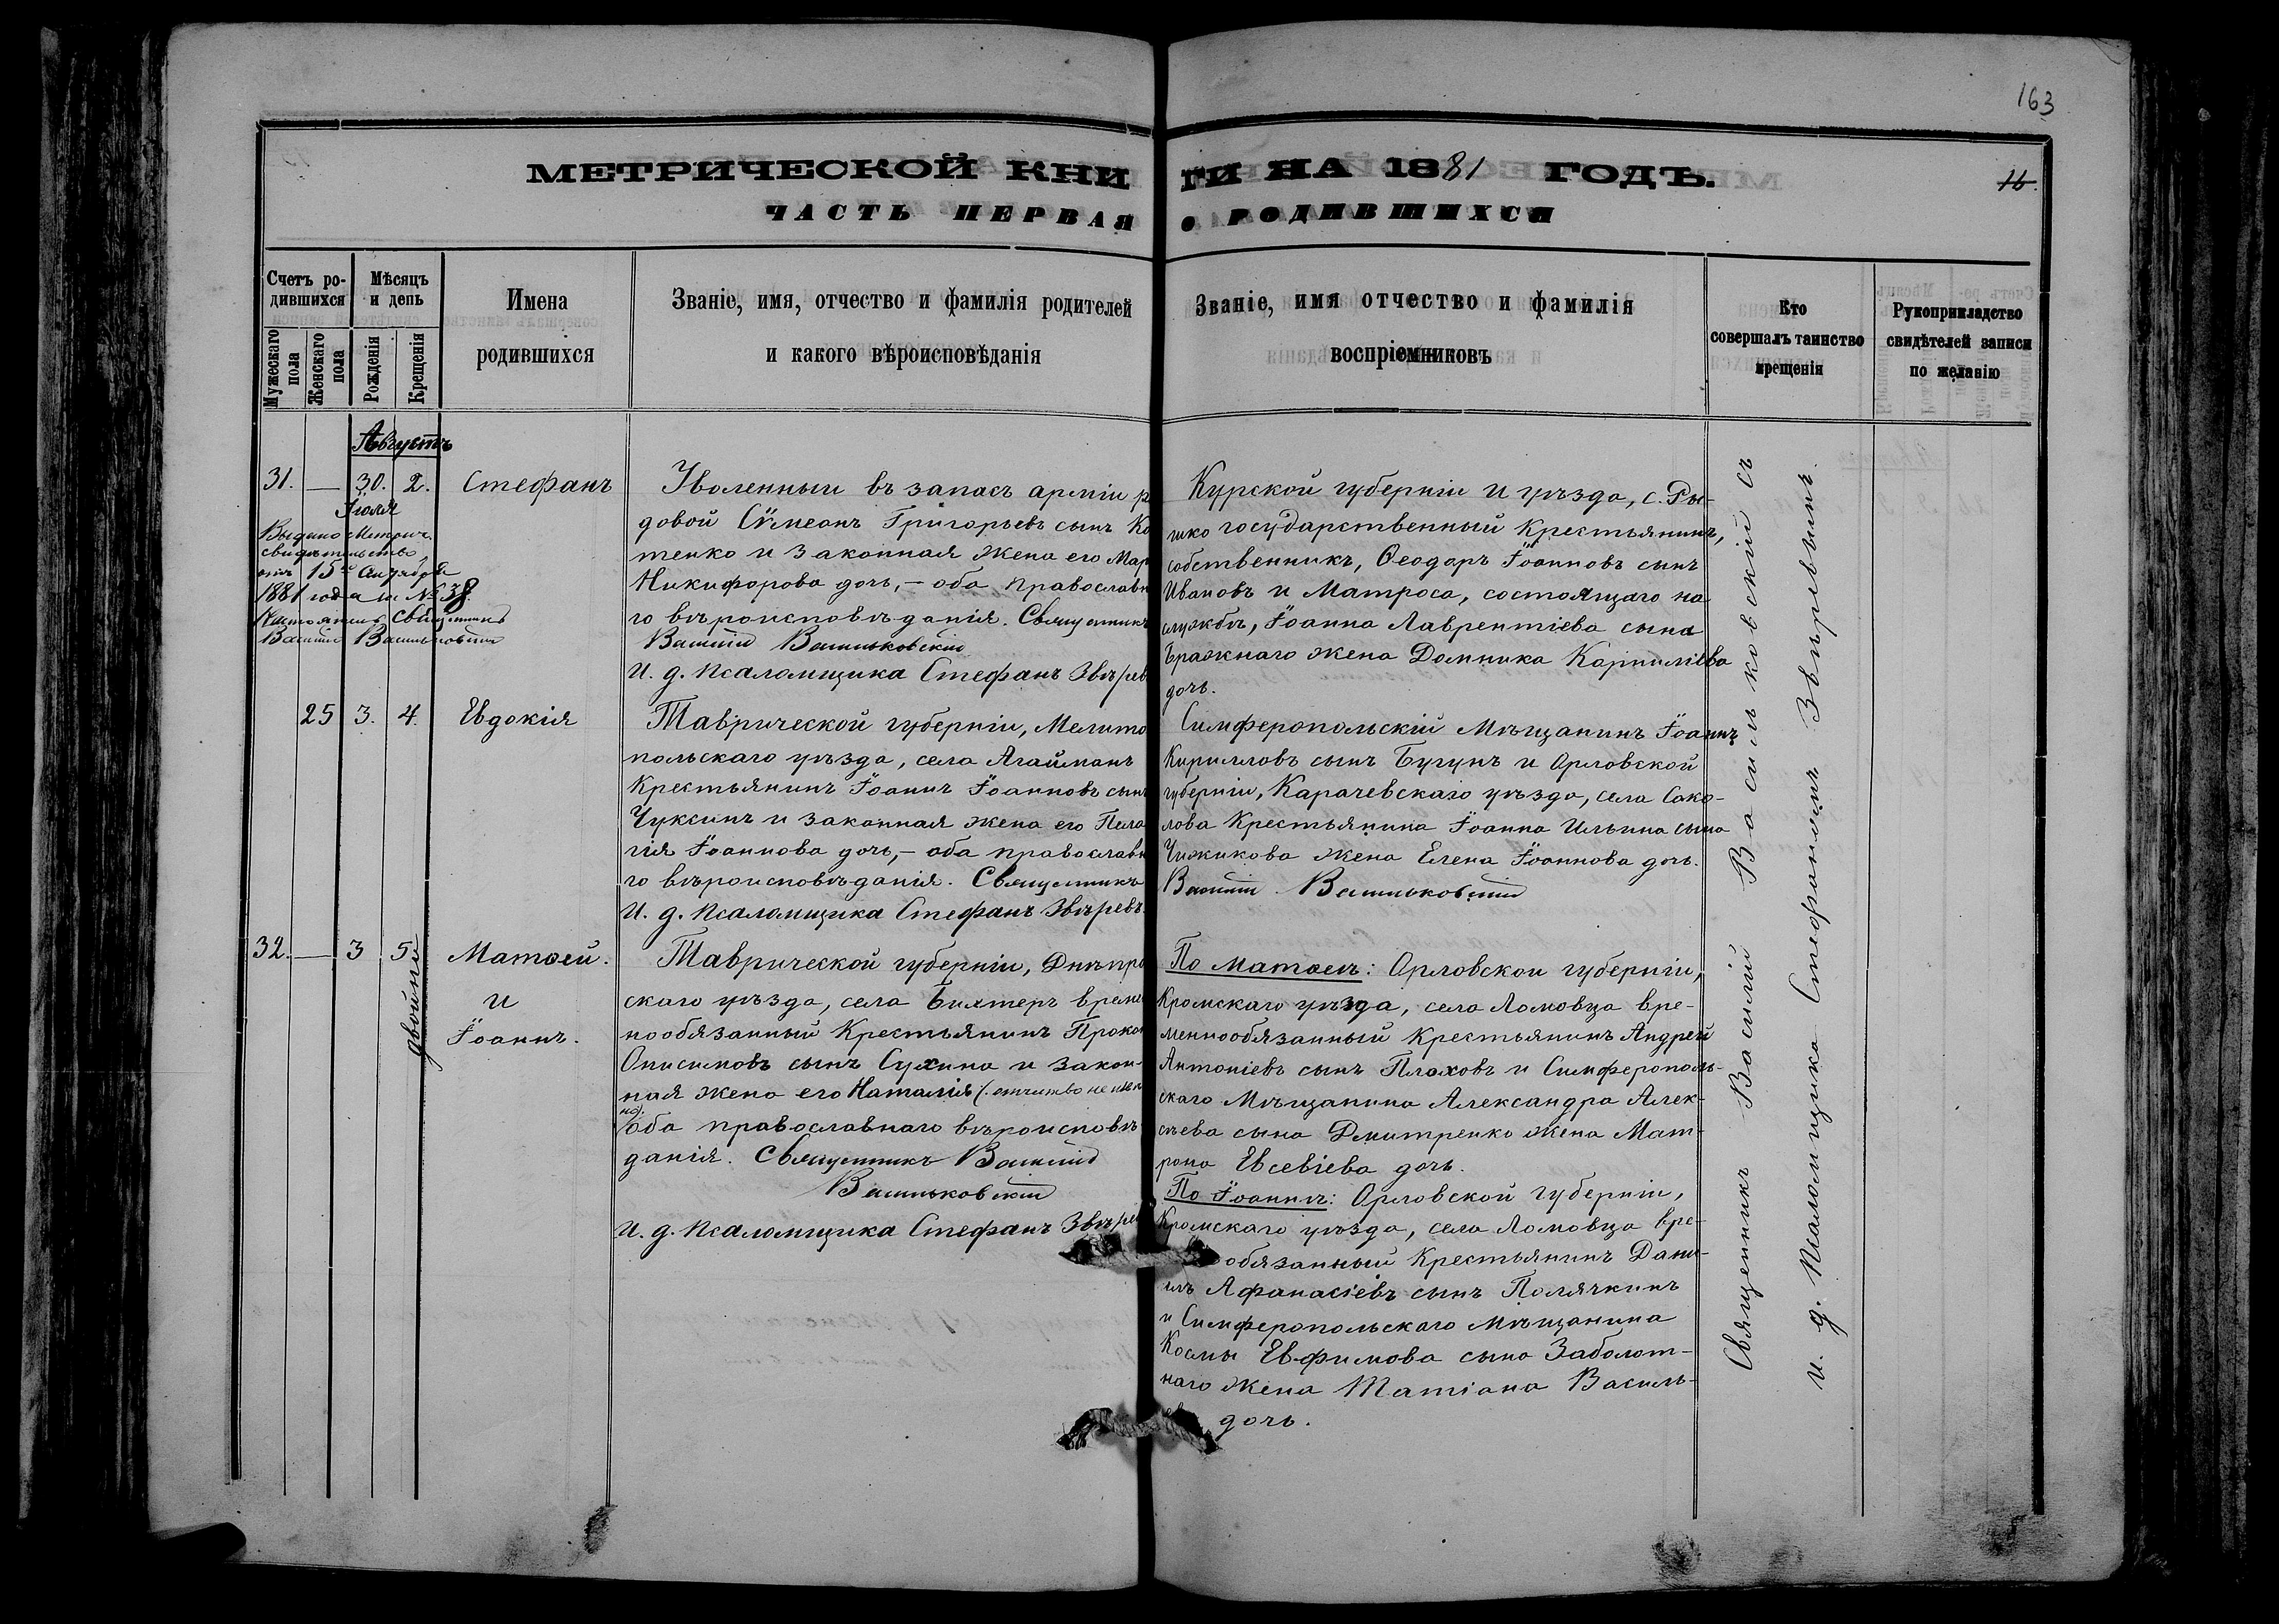 163
МЕТРИЧЕСКОЙ КНИГИ НА 1881 ГОДЪ.
16.
ЧАСТЬ ПЕРВАЯ о РОДИВШИХСЯ
Счетъ родившихся
Мужескаго пола
Женскаго пола
Мѣсяцъ и день
Рожденія
Крещенія
Имена
родившихся
Званіе, имя, отчество и фамилія родителей
и какого вѣроисповѣданія
Званіе, имя отчество и фамилія
воспріемниковъ
Кто
совершалъ таинство
крещенія
Рукоприкладство
свидѣтелей записи
по желанію
Августъ
31. — 30. 2. Стефанъ
Іюля
Выдано Метрич.
свидѣтельство
1881 года за № 38.
Священникъ
Василій Васильковскій
Уволенный въ запасъ арміи р
довой Сѵмеонъ Григорьевъ сынъ Ко
тенко и законная жена его Мар
Никифорова дочь, — оба православн
го вѣроисповѣданія. Священникъ
Василій Васильковскій
И. д. Псаломщика Стефанъ Звѣрев
Курской губерніи и уѣзда, с. Ры-
шко государственный Крестьянинъ,
собственникъ, Ѳеодоръ Іоанновъ сынъ
Ивановъ и Матроса, состоящаго на
службѣ, Іоанна Лаврентіева сына
Бражнаго жена Домника Карпиліева
дочь.
25 3. 4. Евдокія
Таврической губерніи, Мелито
польскаго уѣзда, села Агайманъ
Крестьянинъ Іоаннъ Іоанновъ сынъ
Чуксинъ и законная жена его Пела
гія Іоаннова дочь, — оба православн
го вѣроисповѣданія. Священникъ
И. д. Псаломщика Стефанъ Звѣревъ.
Симферопольскій Мѣщанинъ Іоаннъ
Кирилловъ сынъ Бугунъ и Орловской
губерніи, Карачевскаго уѣзда, села Сако-
лова Крестьянина Іоанна Ильина сына
Чижикова жена Елена Іоаннова дочь.
Василій Васильковскій
32. — 3 5 Матѳей.
и
Іоаннъ.
двойни
Таврической губерніи, Днѣпро
скаго уѣзда, села Бихтеръ време
нообязанный Крестьянинъ Проко
Онисимовъ сынъ Сухина и закон-
ная жена его Наталія (отчество не извѣст
но).
оба православнаго вѣроисповѣ
данія. Священникъ Василій
Васильковскій
И. д. Псаломщика Стефанъ Звѣрев
По Матѳеѣ: Орловской губерніи,
Кромскаго уѣзда, села Ломовца вре-
меннообязанный Крестьянинъ Андрей
Антоніевъ сынъ Плаховъ и Симферополь-
скаго Мѣщанина Александра Алек-
сѣева сына Дмитренко жена Мат-
рона Евсевіева дочь.
По Іоаннѣ: Орловской губерніи,
Кромскаго уѣзда, села Ломовца вре-
обязанный Крестьянинъ Дани-
илъ Афанасіевъ сынъ Полячкинъ
и Симферопольскаго Мѣщанина
Космы Евфимова сына Заболот-
наго жена Татіана Василь-
дочь.
Священникъ Василій Васильковскій съ
и. д. Псаломщика Стефаномъ Звѣревымъ.